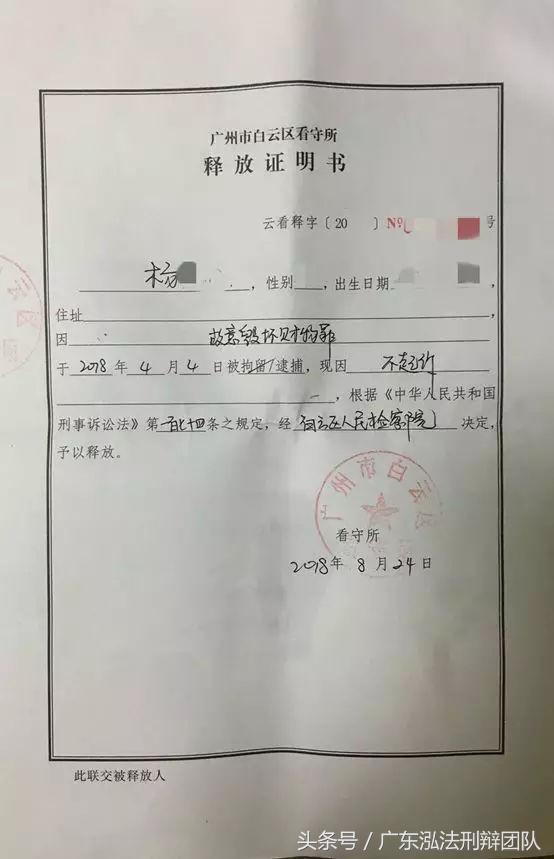 广州市白云区看守所
释放证明书
云看释字〔20 〕№ 号
杨 ，性别 ，出生日期 ，
住址 ，
因 故意毁坏财物罪
于 2018 年 4 月 4 日被拘留/逮捕，现因 不起诉
，根据《中华人民共和国
刑事诉讼法》第 条之规定，经 白云区人民检察院 决定，
予以释放。
广州市白云区
看守所
2018年 8 月 24 日
此联交被释放人
头条号／广东泓法刑辩团队